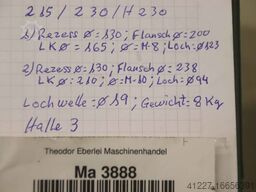 215 / 230 / H 230
1) Rezess Ø = 130; Flansch Ø = 200
LK Ø = 165; Ø = M-8; Loch = Ø 123
2) Rezess Ø = 130; Flansch Ø = 238
LK Ø = 210; Ø = M-10; Loch = Ø 94
Lochwelle = Ø 19; Gewicht = 8 Kg
Halle 3
Theodor Eberlei Maschinenhandel
Ma 3888